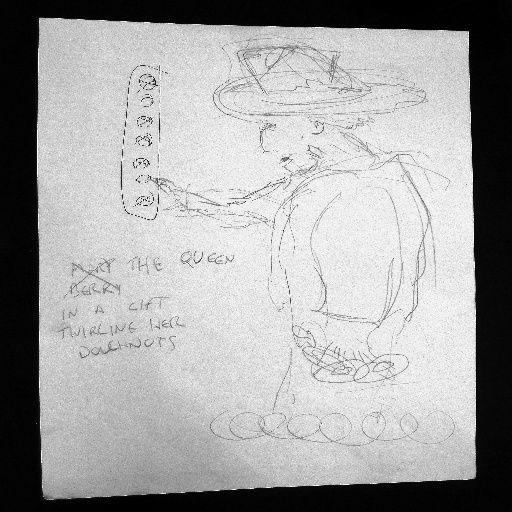 MARY THE QUEEN
BERRY
IN A LIFT
TWIRLING HER
DOUGHNUTS